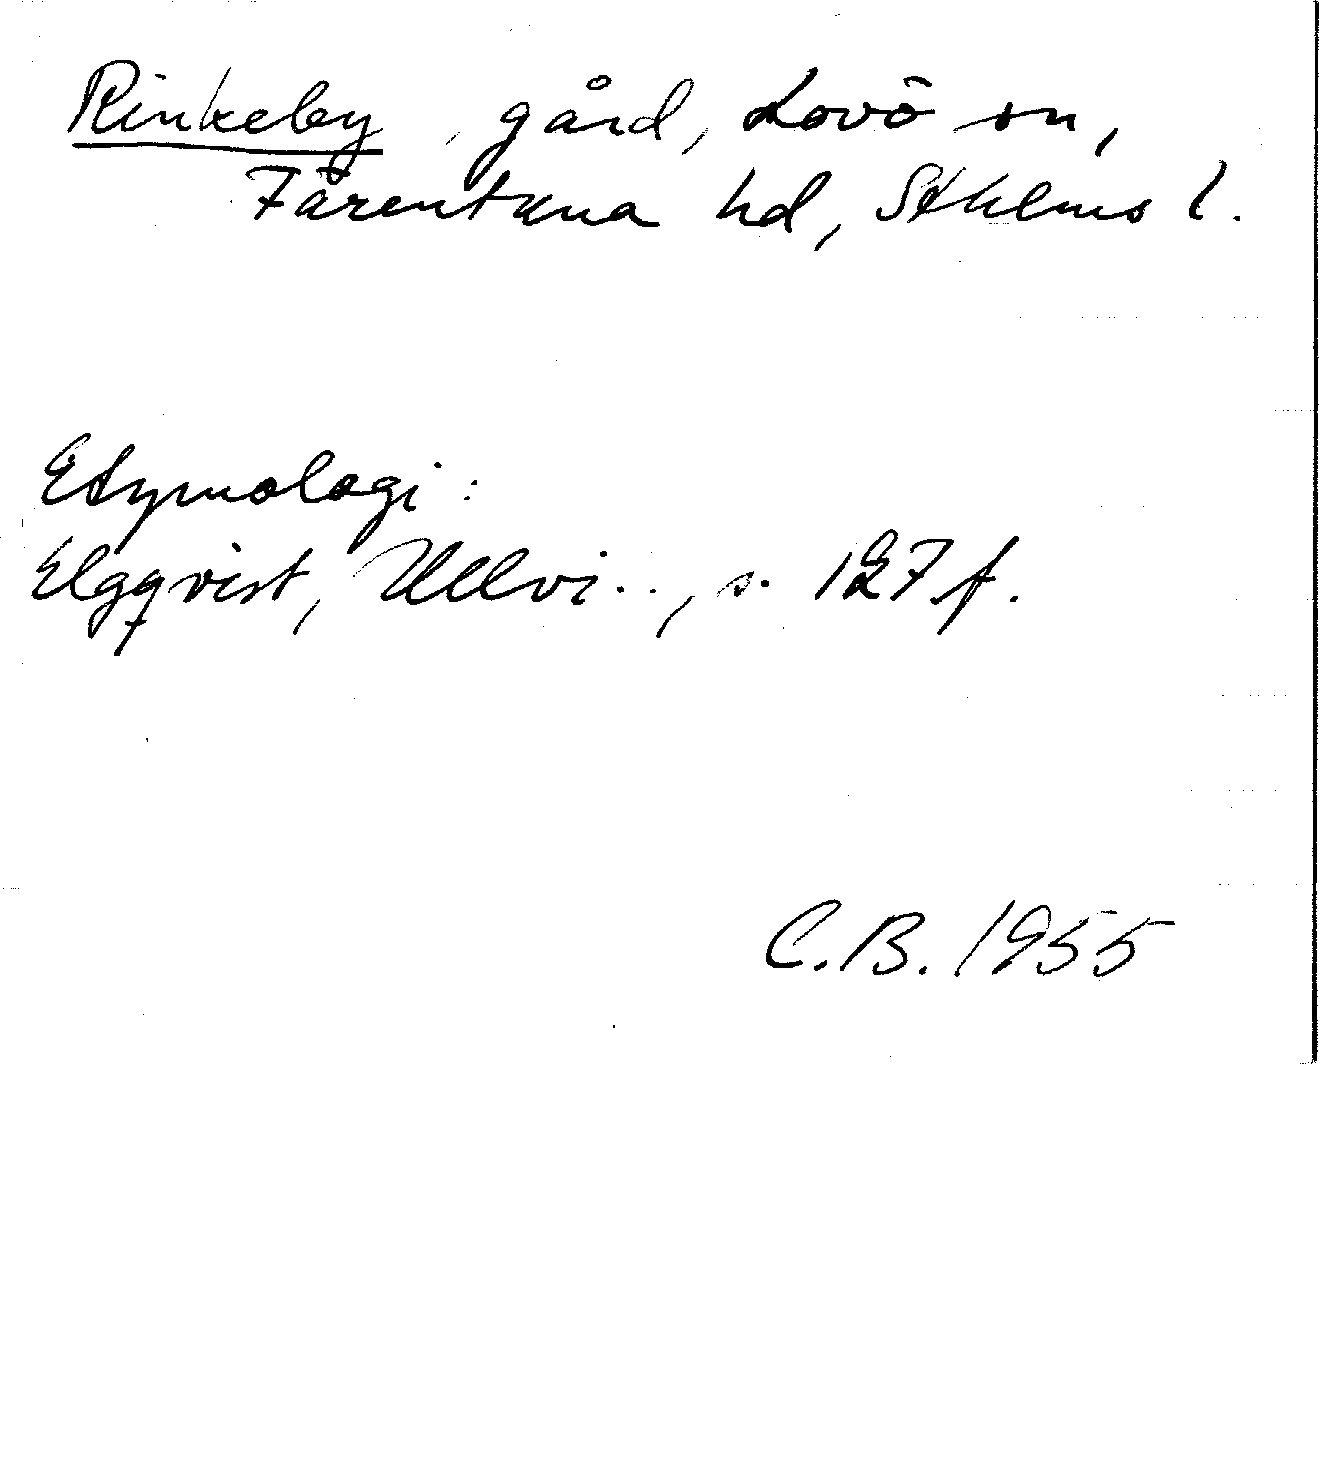 Rinkeby, gård, Lovö sn,
Färentuna hd, Sthlms l.
Etymologi:
Elgqvist, Ullvi.., s. 127 f.
C.B. 1955